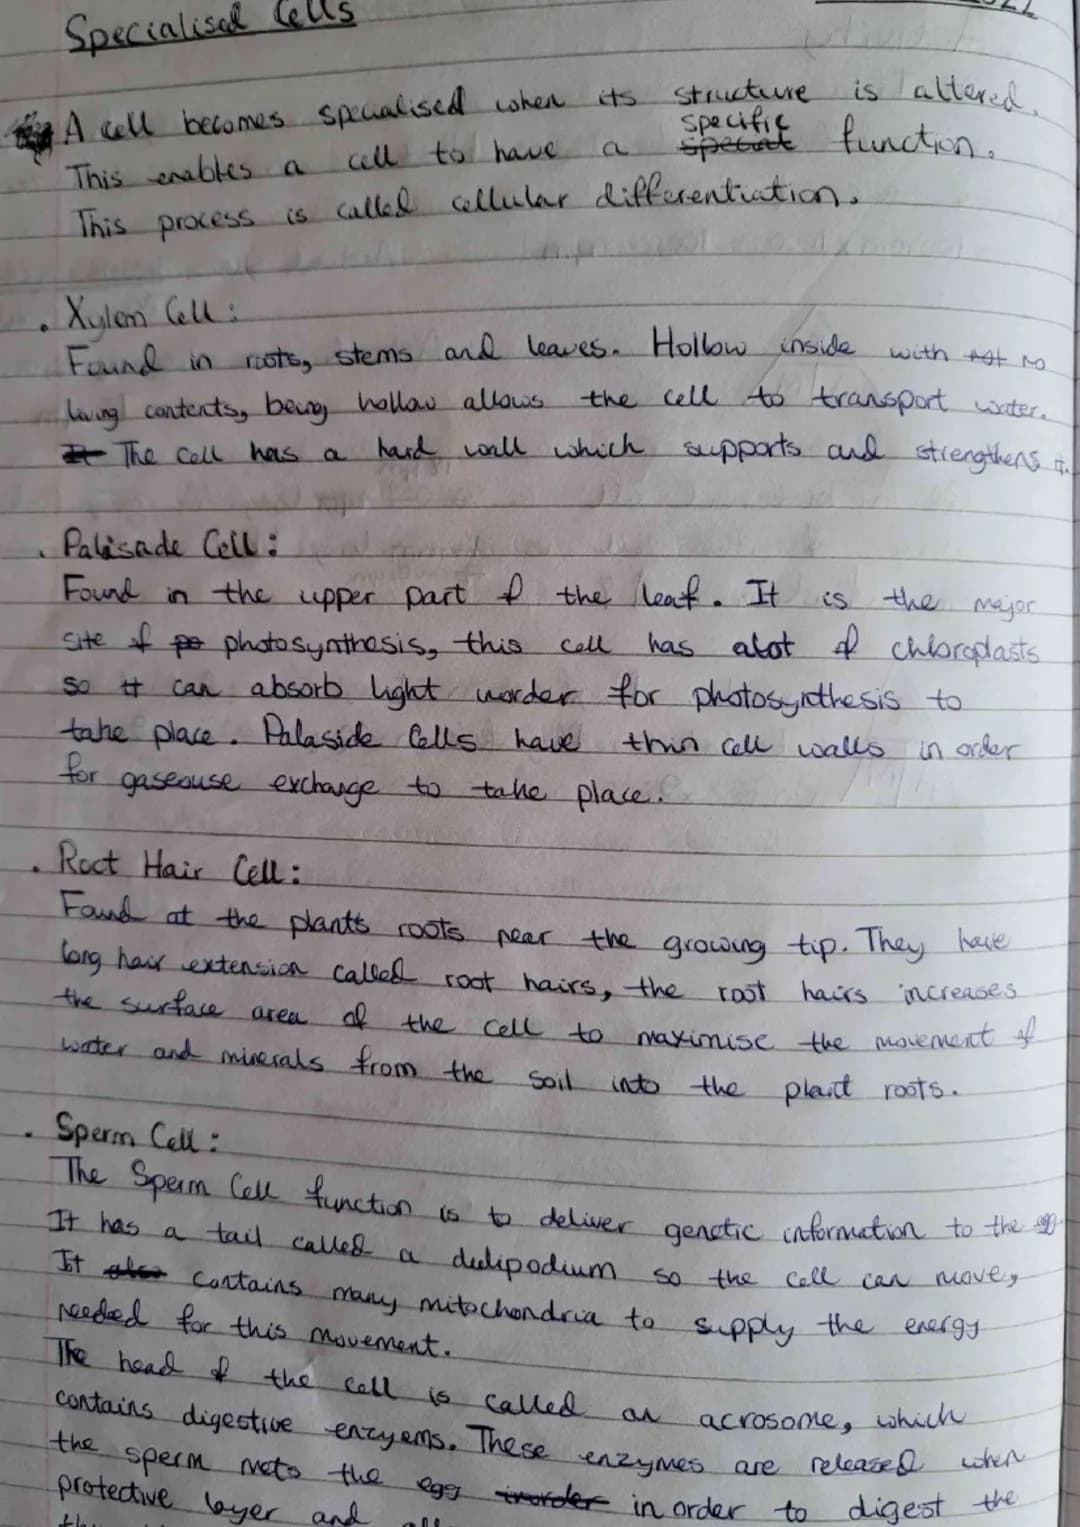 Specialised Cells
A cell becomes specialised when its structure is altered.
specific
This enables a cell to have a special function.
This process is called cellular differentiation.
. Xylem Cell:
Found in roots, stems and leaves. Hollow inside with not no
living contents, being hollow allows the cell to transport water.
It The cell has a hard wall which supports and strengthens it.
. Palisade Cell:
Found in the upper part of the leaf. It is the major
site of po photosynthesis, this cell has alot of chloroplasts
so it can absorb light inorder for photosynthesis to
take place. Palaside Cells have thin cell walls in order
for gaseouse exchange to take place.
. Root Hair Cell:
Found at the plants roots near the growing tip. They have
long hair extension called root hairs, the root hairs increases
the surface area of the cell to maximise the movement of
water and minerals from the soil into the plant roots.
. Sperm Cell:
The Sperm Cell function is to deliver genetic information to the egg.
It has a tail called a dulipodium so the cell can move,
It also contains many mitochondria to supply the energy
needed for this movement.
The head of the cell is called an acrosome, which
contains digestive enzyems. These enzymes are released when
the sperm mets the egg inorder in order to digest the
protective layer and